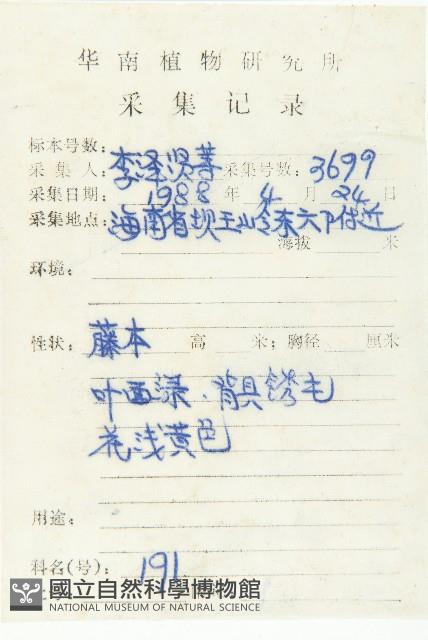 华南植物研究所
采集记录
标本号数:
采集人: 李泽贤等 采集号数: 3699
采集日期: 1988 年 4 月 24 日
采集地点: 海南省坝王岭东六下附近
海拔 米
环境:
性状: 藤本 高 米; 胸径 厘米
叶面绿.背具锈毛
花浅黄色
用途:
科名(号): 191
國立自然科學博物館
NATIONAL MUSEUM OF NATURAL SCIENCE